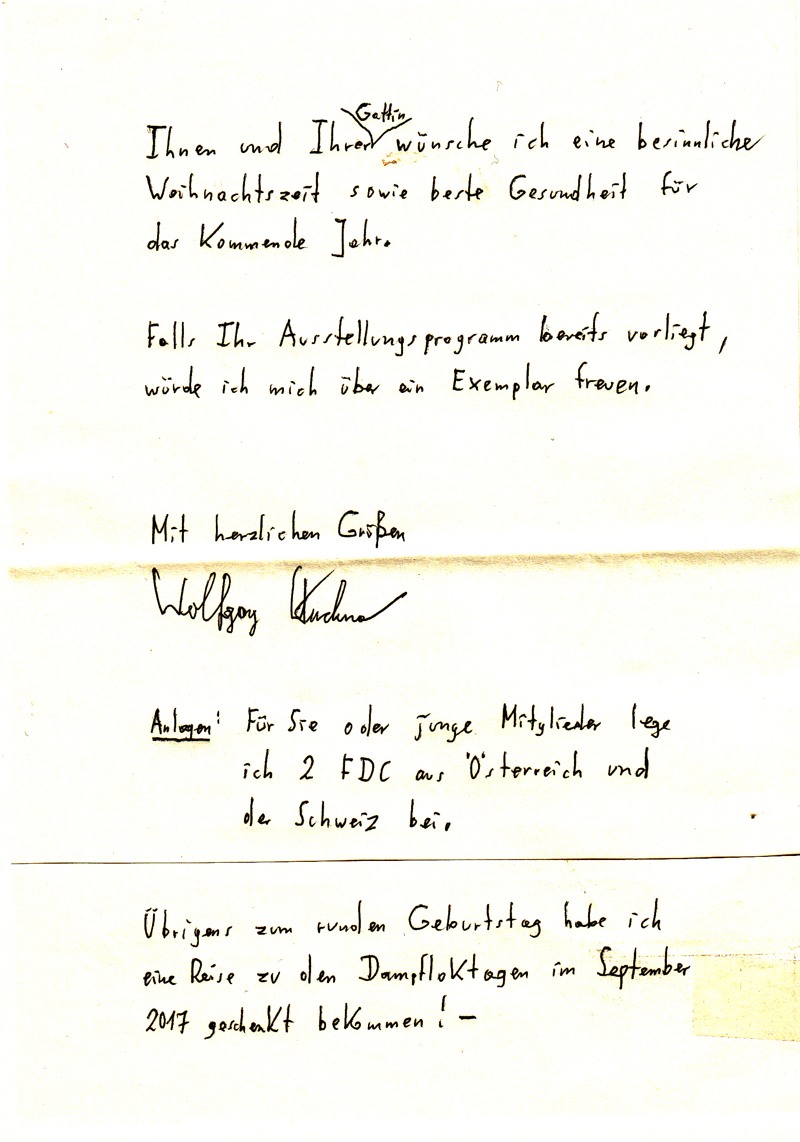 Ihnen und Ihrer Gattin wünsche ich eine besinnliche
Weihnachtszeit sowie beste Gesundheit für
das Kommende Jahr.
Falls Ihr Ausstellungsprogramm bereits vorliegt,
würde ich mich über ein Exemplar freuen.
Mit herzlichen Grüßen
Wolfgang
Anlagen: Für Sie oder junge Mitglieder lege
ich 2 FDC aus Österreich und
der Schweiz bei.
Übrigens zum runden Geburtstag habe ich
eine Reise zu den Dampfloktagen im September
2017 geschenkt bekommen! –